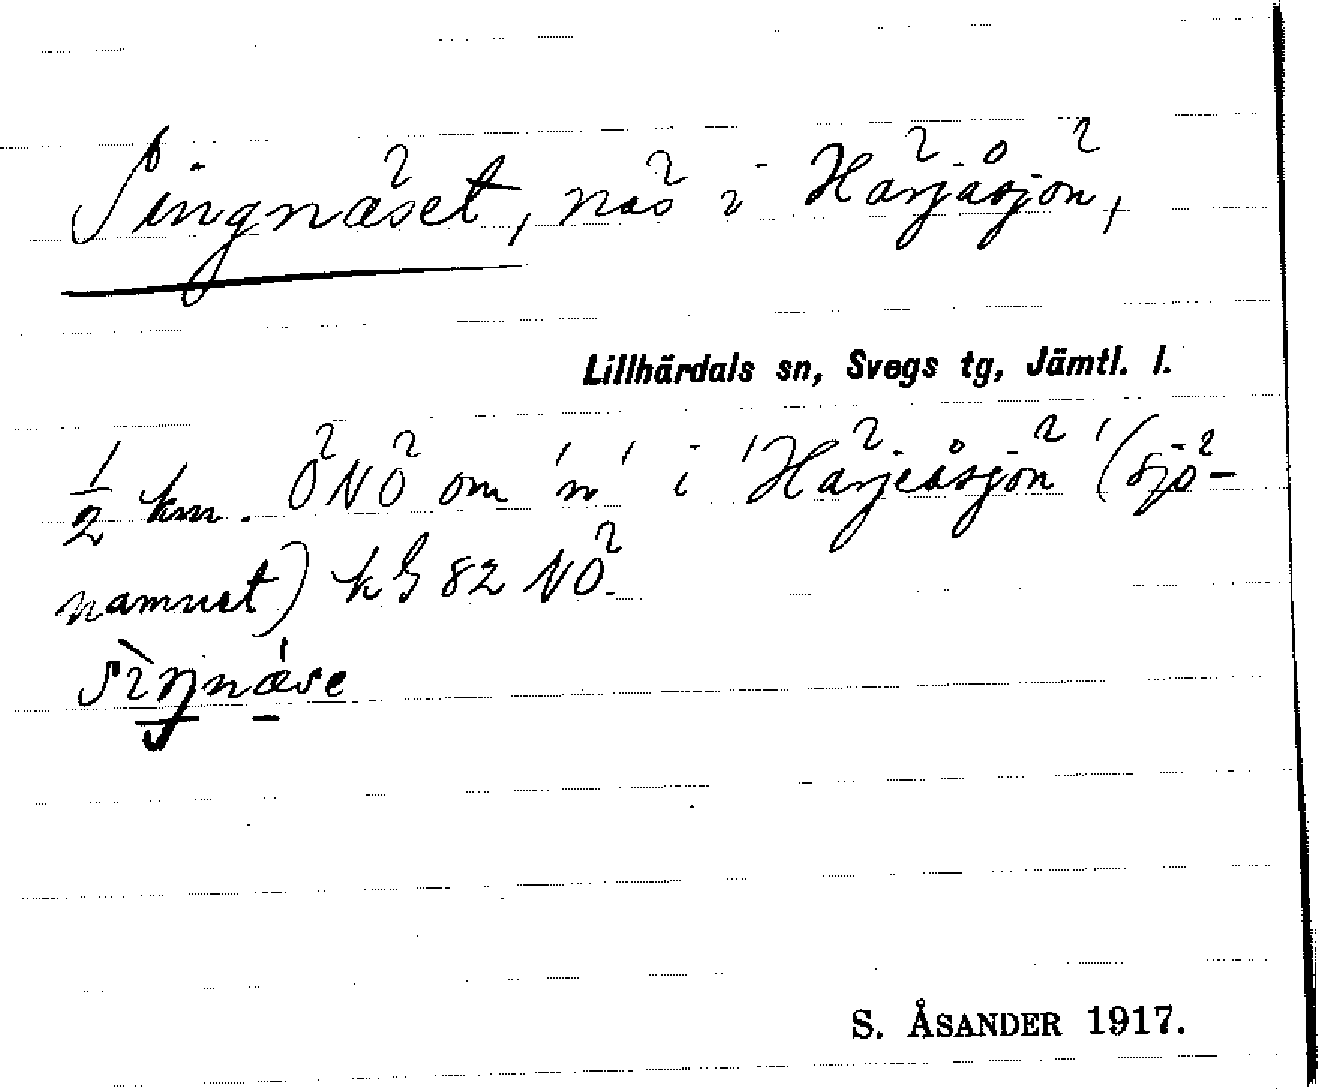 Singnäset, näs i Härjåsjön,
Lillhärdals sn, Svegs tg, Jämtl. l.
1/2 km. ÖNÖ om 'n' i 'Härjeåsjön' (sjö-
namnet) kbl 82 NÖ.
sìŋnǽse
S. ÅSANDER 1917.